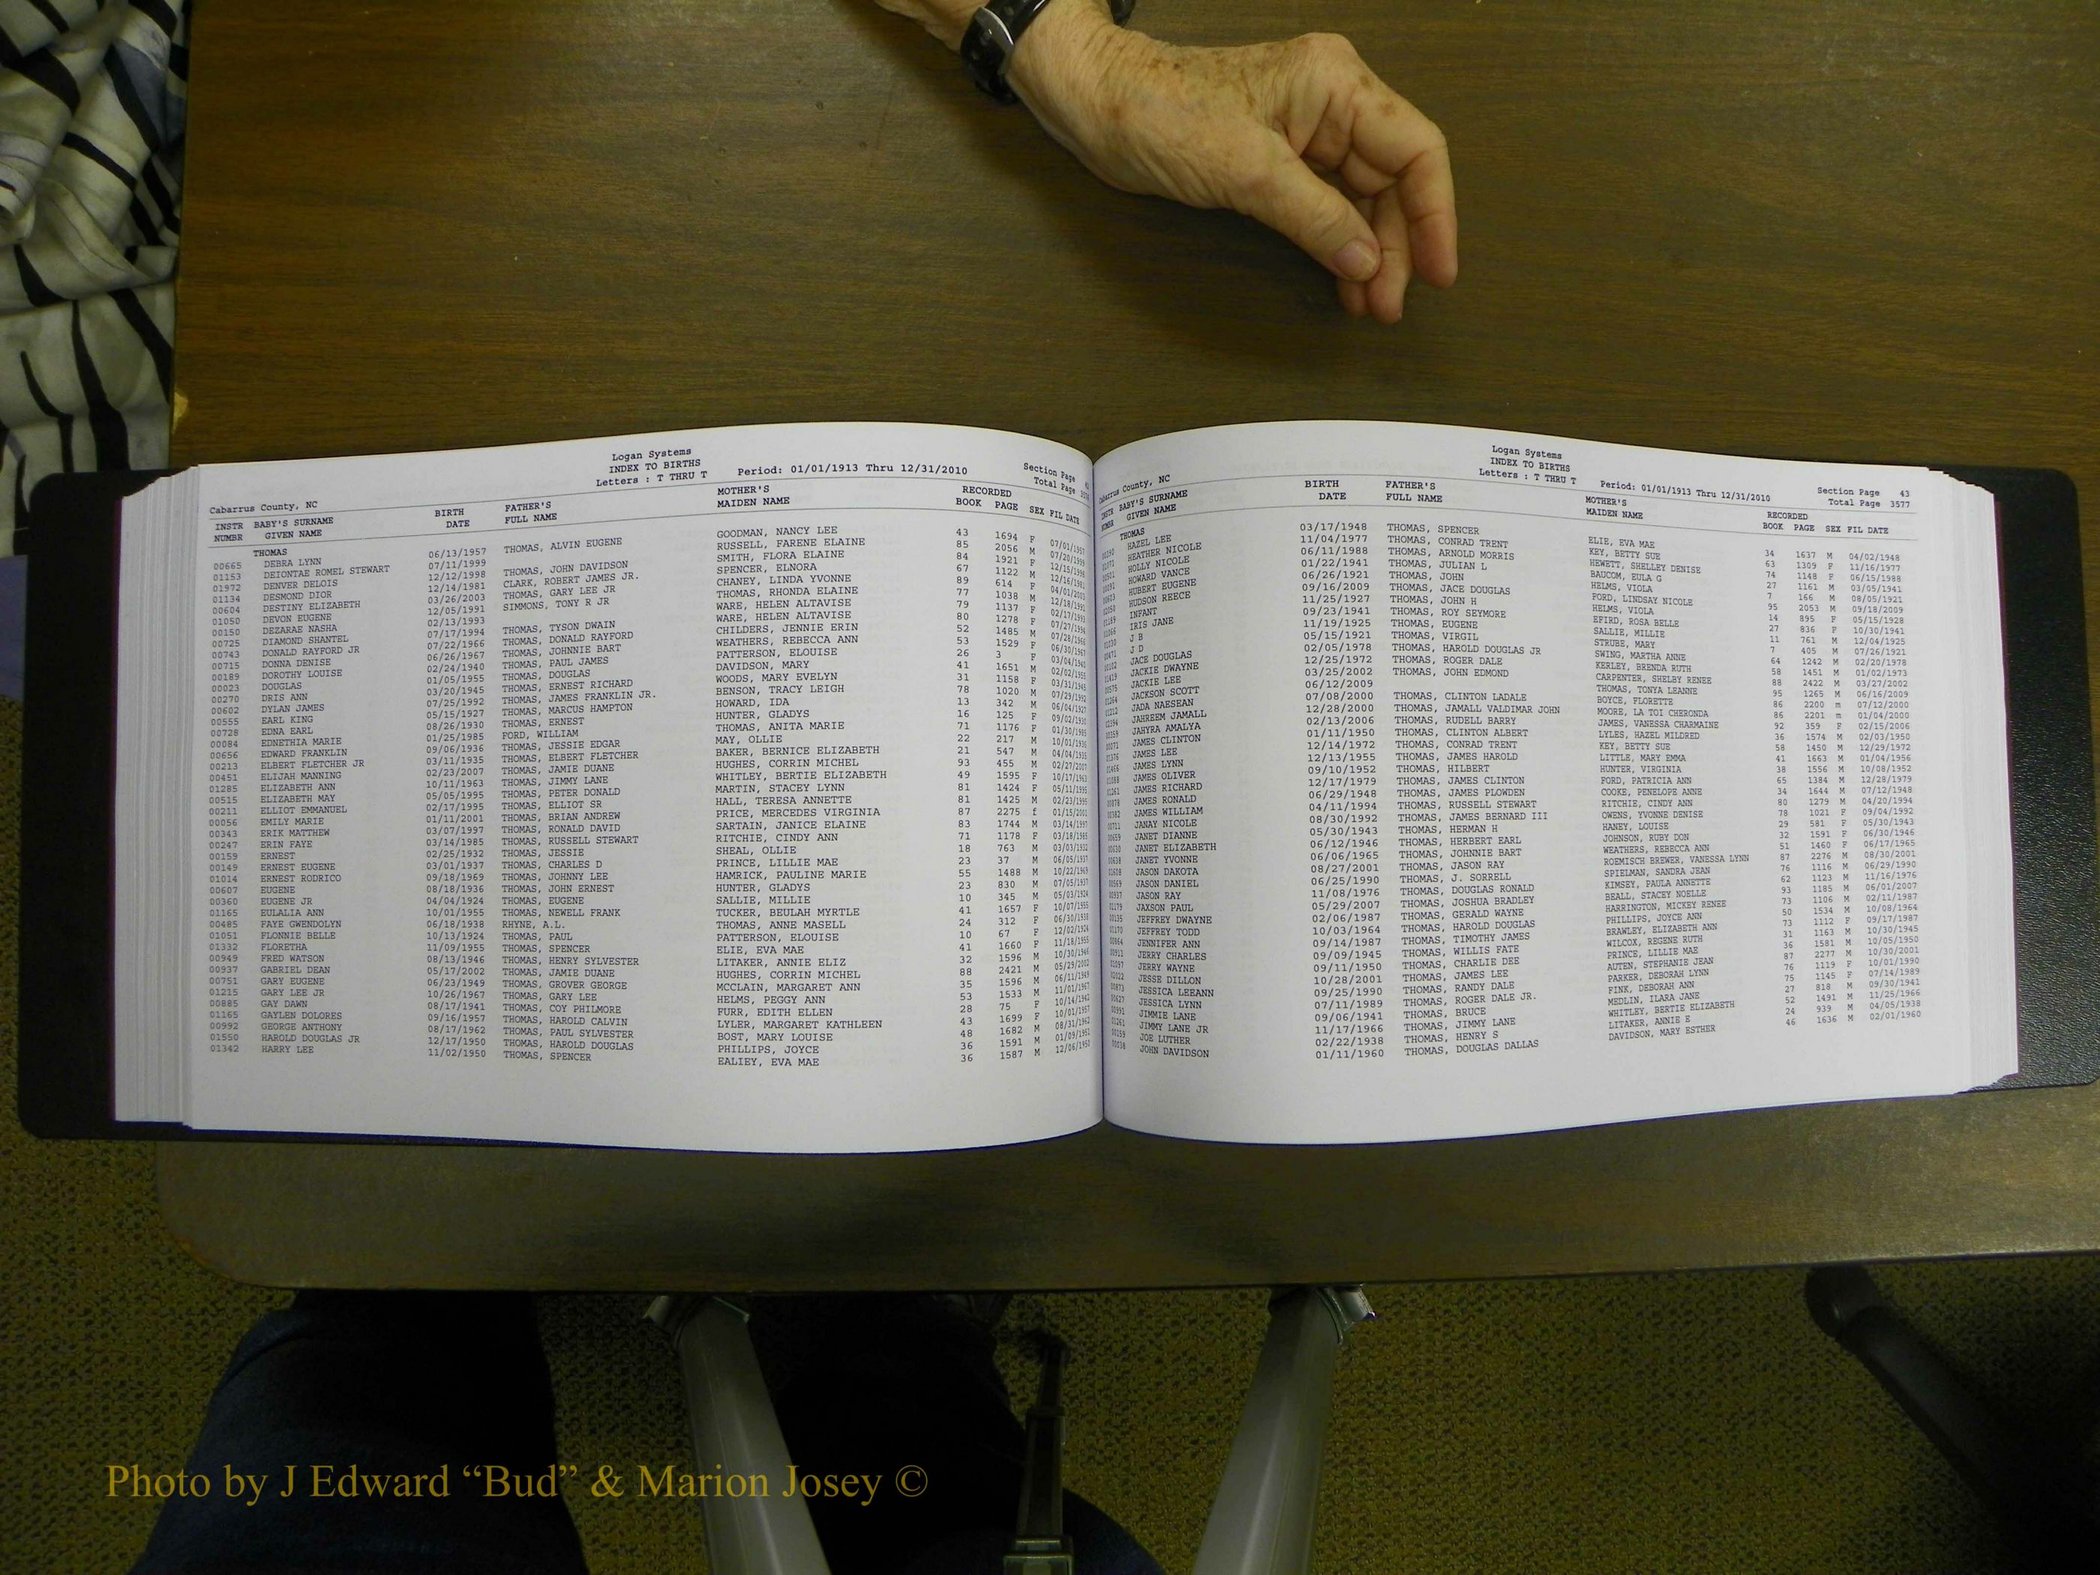 Logan Systems
INDEX TO BIRTHS
Letters : T THRU T
Period: 01/01/1913 Thru 12/31/2010
Section Page
Total Page
Cabarrus County, NC
INSTR BABY'S SURNAME BIRTH FATHER'S MOTHER'S RECORDED
NUMBR GIVEN NAME DATE FULL NAME MAIDEN NAME BOOK PAGE SEX FIL DATE
THOMAS
00665 DEBRA LYNN 06/13/1957 THOMAS, ALVIN EUGENE GOODMAN, NANCY LEE 43 1694 F 07/01/1957
01153 DEIONTAE ROMEL STEWART 07/11/1999 RUSSELL, FARENE ELAINE 85 2056 M 07/20/1999
01972 DENVER DELOIS 12/12/1998 THOMAS, JOHN DAVIDSON SMITH, FLORA ELAINE 84 1921 F 12/15/1998
01134 DESMOND DIOR 12/14/1981 CLARK, ROBERT JAMES JR. SPENCER, ELNORA 67 1122 M 12/16/1981
00604 DESTINY ELIZABETH 03/26/2003 THOMAS, GARY LEE JR CHANEY, LINDA YVONNE 89 614 F 04/01/2003
01050 DEVON EUGENE 12/05/1991 SIMMONS, TONY R JR THOMAS, RHONDA ELAINE 77 1038 M 12/18/1991
00150 DEZARAE NASHA 02/13/1993 WARE, HELEN ALTAVISE 79 1137 F 02/17/1993
00725 DIAMOND SHANTEL 07/17/1994 THOMAS, TYSON DWAIN WARE, HELEN ALTAVISE 80 1278 F 07/27/1994
00743 DONALD RAYFORD JR 07/22/1966 THOMAS, DONALD RAYFORD CHILDERS, JENNIE ERIN 52 1485 M 07/28/1966
00715 DONNA DENISE 06/26/1967 THOMAS, JOHNNIE BART WEATHERS, REBECCA ANN 53 1529 F 06/30/1967
00189 DOROTHY LOUISE 02/24/1940 THOMAS, PAUL JAMES PATTERSON, ELOUISE 26 3 F 03/04/1940
00023 DOUGLAS 01/05/1955 THOMAS, DOUGLAS DAVIDSON, MARY 41 1651 M 02/02/1955
00270 DRIS ANN 03/20/1945 THOMAS, ERNEST RICHARD WOODS, MARY EVELYN 31 1158 F 03/31/1945
00602 DYLAN JAMES 07/25/1992 THOMAS, JAMES FRANKLIN JR. BENSON, TRACY LEIGH 78 1020 M 07/29/1992
00555 EARL KING 05/15/1927 THOMAS, MARCUS HAMPTON HOWARD, IDA 13 342 M 06/04/1927
00728 EDNA EARL 08/26/1930 THOMAS, ERNEST HUNTER, GLADYS 16 125 F 09/02/1930
00084 EDNETHIA MARIE 01/25/1985 FORD, WILLIAM THOMAS, ANITA MARIE 71 1176 F 01/30/1985
00656 EDWARD FRANKLIN 09/06/1936 THOMAS, JESSIE EDGAR MAY, OLLIE 22 217 M 10/01/1936
00213 ELBERT FLETCHER JR 03/11/1935 THOMAS, ELBERT FLETCHER BAKER, BERNICE ELIZABETH 21 547 M 04/04/1935
00451 ELIJAH MANNING 02/23/2007 THOMAS, JAMIE DUANE HUGHES, CORRIN MICHEL 93 455 M 02/27/2007
01285 ELIZABETH ANN 10/11/1963 THOMAS, JIMMY LANE WHITLEY, BERTIE ELIZABETH 49 1595 F 10/17/1963
00515 ELIZABETH MAY 05/05/1995 THOMAS, PETER DONALD MARTIN, STACEY LYNN 81 1424 F 05/11/1995
00211 ELLIOT EMMANUEL 02/17/1995 THOMAS, ELLIOT SR HALL, TERESA ANNETTE 81 1425 M 02/23/1995
00056 EMILY MARIE 01/11/2001 THOMAS, BRIAN ANDREW PRICE, MERCEDES VIRGINIA 87 2275 f 01/15/2001
00343 ERIK MATTHEW 03/07/1997 THOMAS, RONALD DAVID SARTAIN, JANICE ELAINE 83 1744 M 03/14/1997
00247 ERIN FAYE 03/14/1985 THOMAS, RUSSELL STEWART RITCHIE, CINDY ANN 71 1178 F 03/18/1985
00159 ERNEST 02/25/1932 THOMAS, JESSIE SHEAL, OLLIE 18 763 M 03/03/1932
00149 ERNEST EUGENE 03/01/1937 THOMAS, CHARLES D PRINCE, LILLIE MAE 23 37 M 06/05/1937
01014 ERNEST RODRICO 09/18/1969 THOMAS, JOHNNY LEE HAMRICK, PAULINE MARIE 55 1488 M 10/22/1969
00607 EUGENE 08/18/1936 THOMAS, JOHN ERNEST HUNTER, GLADYS 23 830 M 07/05/1937
00360 EUGENE JR 04/04/1924 THOMAS, EUGENE SALLIE, MILLIE 10 345 M 05/03/1924
01165 EULALIA ANN 10/01/1955 THOMAS, NEWELL FRANK TUCKER, BEULAH MYRTLE 41 1657 F 10/07/1955
00485 FAYE GWENDOLYN 06/18/1938 RHYNE, A.L. THOMAS, ANNE MASELL 24 312 F 06/30/1938
01051 FLONNIE BELLE 10/13/1924 THOMAS, PAUL PATTERSON, ELOUISE 10 67 F 12/02/1924
01332 FLORETHA 11/09/1955 THOMAS, SPENCER ELIE, EVA MAE 41 1660 F 11/18/1955
00949 FRED WATSON 08/13/1946 THOMAS, HENRY SYLVESTER LITAKER, ANNIE ELIZ 32 1596 M 10/30/1946
00937 GABRIEL DEAN 05/17/2002 THOMAS, JAMIE DUANE HUGHES, CORRIN MICHEL 88 2421 M 05/29/2002
00751 GARY EUGENE 06/23/1949 THOMAS, GROVER GEORGE MCCLAIN, MARGARET ANN 35 1596 M 06/11/1949
01215 GARY LEE JR 10/26/1967 THOMAS, GARY LEE HELMS, PEGGY ANN 53 1533 M 11/01/1967
00885 GAY DAWN 08/17/1941 THOMAS, COY PHILMORE FURR, EDITH ELLEN 28 75 F 10/14/1941
01165 GAYLEN DOLORES 09/16/1957 THOMAS, HAROLD CALVIN LYLER, MARGARET KATHLEEN 43 1699 F 10/01/1957
00992 GEORGE ANTHONY 08/17/1962 THOMAS, PAUL SYLVESTER BOST, MARY LOUISE 48 1682 M 08/31/1962
01550 HAROLD DOUGLAS JR 12/17/1950 THOMAS, HAROLD DOUGLAS PHILLIPS, JOYCE 36 1591 M 01/09/1951
01342 HARRY LEE 11/02/1950 THOMAS, SPENCER EALIEY, EVA MAE 36 1587 M 12/06/1950
Logan Systems
INDEX TO BIRTHS
Letters : T THRU T
Period: 01/01/1913 Thru 12/31/2010
Section Page 43
Total Page 3577
Cabarrus County, NC
INSTR BABY'S SURNAME BIRTH FATHER'S MOTHER'S RECORDED
NUMBR GIVEN NAME DATE FULL NAME MAIDEN NAME BOOK PAGE SEX FIL DATE
THOMAS
HAZEL LEE 03/17/1948 THOMAS, SPENCER ELIE, EVA MAE 34 1637 M 04/02/1948
HEATHER NICOLE 11/04/1977 THOMAS, CONRAD TRENT KEY, BETTY SUE 63 1309 F 11/16/1977
HOLLY NICOLE 06/11/1988 THOMAS, ARNOLD MORRIS HEWETT, SHELLEY DENISE 74 1148 F 06/15/1988
HOWARD VANCE 01/22/1941 THOMAS, JULIAN L BAUCOM, EULA G 27 1161 M 03/05/1941
HUBERT EUGENE 06/26/1921 THOMAS, JOHN HELMS, VIOLA 7 166 M 08/05/1921
HUDSON REECE 09/16/2009 THOMAS, JACE DOUGLAS FORD, LINDSAY NICOLE 95 2053 M 09/18/2009
INFANT 11/25/1927 THOMAS, JOHN H HELMS, VIOLA 14 895 F 05/15/1928
IRIS JANE 09/23/1941 THOMAS, ROY SEYMORE EFIRD, ROSA BELLE 27 836 F 10/30/1941
J B 11/19/1925 THOMAS, EUGENE SALLIE, MILLIE 11 761 M 12/04/1925
J D 05/15/1921 THOMAS, VIRGIL STRUBE, MARY 7 405 M 07/26/1921
JACE DOUGLAS 02/05/1978 THOMAS, HAROLD DOUGLAS JR SWING, MARTHA ANNE 64 1242 M 02/20/1978
JACKIE DWAYNE 12/25/1972 THOMAS, ROGER DALE KERLEY, BRENDA RUTH 58 1451 M 01/02/1973
JACKIE LEE 03/25/2002 THOMAS, JOHN EDMOND CARPENTER, SHELBY RENEE 88 2422 M 03/27/2002
JACKSON SCOTT 06/12/2009 THOMAS, TONYA LEANNE 95 1265 M 06/16/2009
JADA NAESEAN 07/08/2000 THOMAS, CLINTON LADALE BOYCE, FLORETTE 86 2200 m 07/12/2000
JAHREEM JAMALL 12/28/2000 THOMAS, JAMALL VALDIMAR JOHN MOORE, LA TOI CHERONDA 86 2201 m 01/04/2000
JAHYRA AMALYA 02/13/2006 THOMAS, RUDELL BARRY JAMES, VANESSA CHARMAINE 92 359 F 02/15/2006
JAMES CLINTON 01/11/1950 THOMAS, CLINTON ALBERT LYLES, HAZEL MILDRED 36 1574 M 02/03/1950
JAMES LEE 12/14/1972 THOMAS, CONRAD TRENT KEY, BETTY SUE 58 1450 M 12/29/1972
JAMES LYNN 12/13/1955 THOMAS, JAMES HAROLD LITTLE, MARY EMMA 41 1663 M 01/04/1956
JAMES OLIVER 09/10/1952 THOMAS, HILBERT HUNTER, VIRGINIA 38 1556 M 10/08/1952
JAMES RICHARD 12/17/1979 THOMAS, JAMES CLINTON FORD, PATRICIA ANN 65 1384 M 12/28/1979
JAMES RONALD 06/29/1948 THOMAS, JAMES PLOWDEN COOKE, PENELOPE ANNE 34 1644 M 07/12/1948
JAMES WILLIAM 04/11/1994 THOMAS, RUSSELL STEWART RITCHIE, CINDY ANN 80 1279 M 04/20/1994
JANAY NICOLE 08/30/1992 THOMAS, JAMES BERNARD III OWENS, YVONNE DENISE 78 1021 F 09/04/1992
JANET DIANNE 05/30/1943 THOMAS, HERMAN H HANEY, LOUISE 29 581 F 05/30/1943
JANET ELIZABETH 06/12/1946 THOMAS, HERBERT EARL JOHNSON, RUBY DON 32 1591 F 06/30/1946
JANET YVONNE 06/06/1965 THOMAS, JOHNNIE BART WEATHERS, REBECCA ANN 51 1460 F 06/17/1965
JASON DAKOTA 08/27/2001 THOMAS, JASON RAY ROEMISCH BREWER, VANESSA LYNN 87 2276 M 08/30/2001
JASON DANIEL 06/25/1990 THOMAS, J. SORRELL SPIELMAN, SANDRA JEAN 76 1116 M 06/29/1990
JASON RAY 11/08/1976 THOMAS, DOUGLAS RONALD KIMSEY, PAULA ANNETTE 62 1123 M 11/16/1976
JAXSON PAUL 05/29/2007 THOMAS, JOSHUA BRADLEY BEALL, STACEY NOELLE 93 1185 M 06/01/2007
JEFFREY DWAYNE 02/06/1987 THOMAS, GERALD WAYNE HARRINGTON, MICKEY RENEE 73 1106 M 02/11/1987
JEFFREY TODD 10/03/1964 THOMAS, HAROLD DOUGLAS PHILLIPS, JOYCE ANN 50 1534 M 10/08/1964
JENNIFER ANN 09/14/1987 THOMAS, TIMOTHY JAMES BRAWLEY, ELIZABETH ANN 73 1112 F 09/17/1987
JERRY CHARLES 09/09/1945 THOMAS, WILLIS FATE WILCOX, REGENE RUTH 31 1163 M 10/30/1945
JERRY WAYNE 09/11/1950 THOMAS, CHARLIE DEE PRINCE, LILLIE MAE 36 1581 M 10/05/1950
JESSE DILLON 10/28/2001 THOMAS, JAMES LEE AUTEN, STEPHANIE JEAN 87 2277 M 10/30/2001
JESSICA LEEANN 09/25/1990 THOMAS, RANDY DALE PARKER, DEBORAH LYNN 76 1119 F 10/01/1990
JESSICA LYNN 07/11/1989 THOMAS, ROGER DALE JR. FINK, DEBORAH ANN 75 1145 F 07/14/1989
JIMMIE LANE 09/06/1941 THOMAS, BRUCE MEDLIN, ILARA JANE 27 818 M 09/30/1941
JIMMY LANE JR 11/17/1966 THOMAS, JIMMY LANE WHITLEY, BERTIE ELIZABETH 52 1491 M 11/25/1966
JOE LUTHER 02/22/1938 THOMAS, HENRY S LITAKER, ANNIE E 24 939 M 04/05/1938
JOHN DAVIDSON 01/11/1960 THOMAS, DOUGLAS DALLAS DAVIDSON, MARY ESTHER 46 1636 M 02/01/1960
Photo by J Edward “Bud” & Marion Josey ©